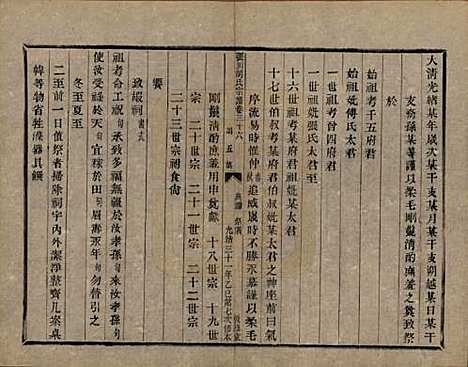 大清光緒某年歲次某干支某月某干支朔越某日某干
支裔孫某等謹以柔毛剛鬣清酌庶羞之奠致祭
於
始祖考千五府君
始祖妣傅氏太君
一世祖考曾四府君
一世祖妣張氏太君至
十六世祖考某府君祖妣某太君
十七世伯叔考某府君伯叔妣某太君之神座前曰氣
序流易時惟仲 追感歲時不勝永慕謹以柔毛
剛鬣清酌庶羞用申奠獻 十八世宗 十九世
宗 二十世宗 二十一世宗 二十二世宗
二十三世宗祠食尚
饗
致嘏詞
祖考命工祝承致多福于汝孝孫 來汝孝孫
使汝受祿于天 宜稼於田 眉壽永年 勿替引之
冬至夏至
二至前一日值祭者掃除祠宇內外潔淨整齊几案桌
幃等物省牲滌器具饌